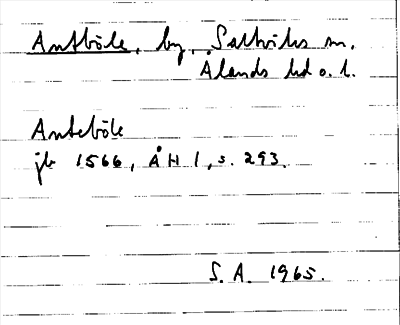 Antböle, by, Saltviks sn.
Ålands hd o. l.
Anteböle
jb 1566, ÅH 1, s. 293.
S. A. 1965.